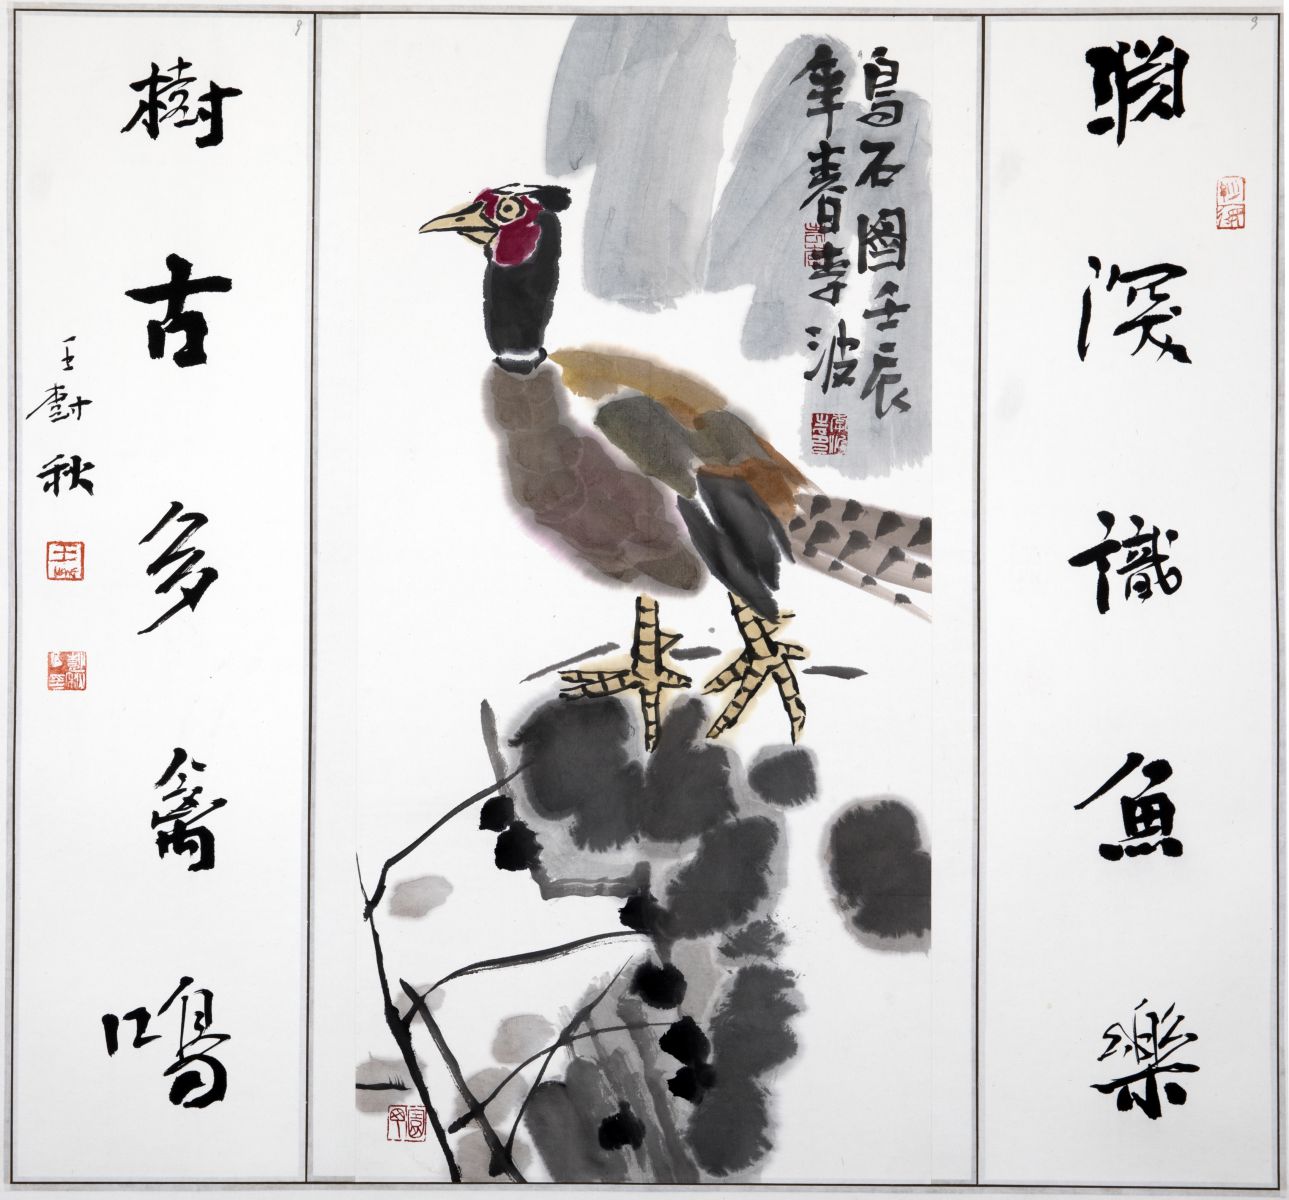 深識魚樂
鳥石圖壬辰
年春日李波
樹古多禽鳴
王秋